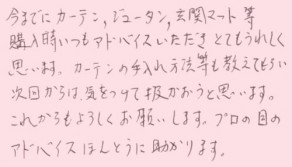 今までにカーテン,ジュータン,玄関マット等
購入時いつもアドバイスいただきとてもうれしく
思います。カーテンの手入れ方法等も教えてもらい
次回からは、気をつけて扱かおうと思います。
これからもよろしくお願いします。プロの目の
アドバイスほんとうに助かります。